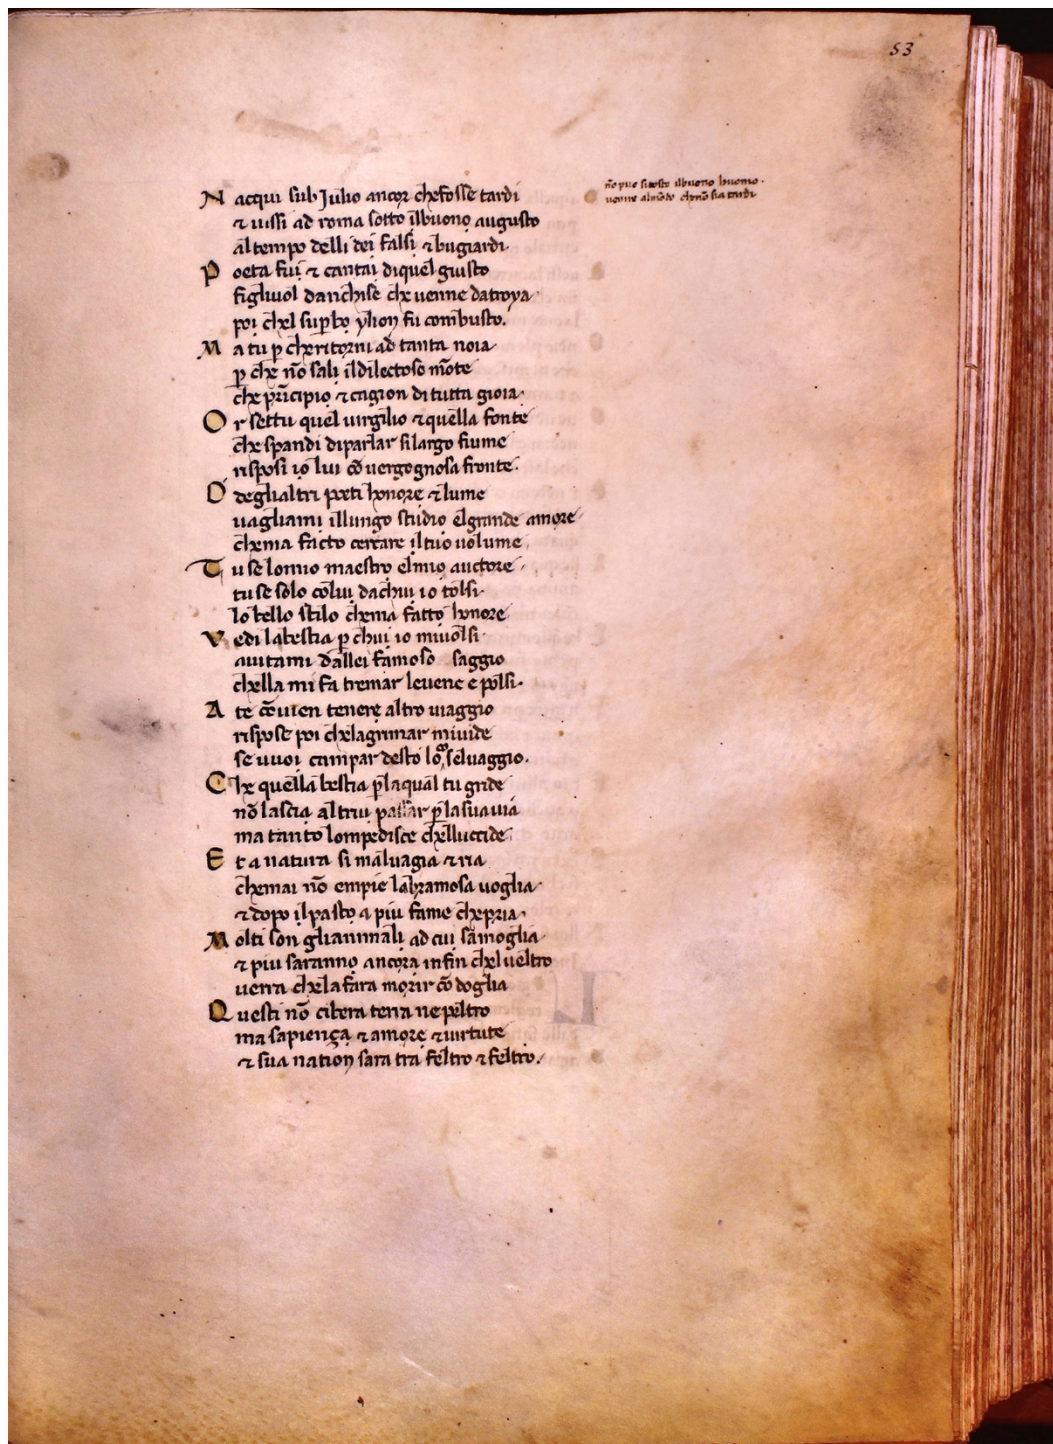 53
nō puo sitosto ilbuono huomo.
uenire almōdo chenō sia tardi
Nacqui sub Julio ancor chefosse tardi
⁊ uissi ad roma sotto ilbuono augusto
al tempo delli dei falsi ⁊ bugiardi
Poeta fui ⁊ cantai diquel giusto
figliuol danchise che uenne datroya
poi chel sup̄bo ylion fu combusto.
Ma tu p̄ cheritorni ad tanta noia
p̄ che nō sali ildilectoso mōte
che pr̄icipio ⁊ cagion di tutta gioia
Or settu quel uirgilio ⁊ quella fonte
che spandi diparlar silargo fiume
risposi io lui cō uergognosa fronte.
O deglialtri poeti honore ⁊ lume
uagliami illungo studio elgrande amore
chema facto cercare iltuo uolume
Tu se lomio maestro elmio auctore
tu se solo colui dachui io tolsi
lo bello stilo chema fatto honore
Vedi labestia p̄ chui io miuolsi
aiutami dallei famoso saggio
chella mi fa tremar leuene e polsi.
A te cōuien tenere altro uiaggio
rispose poi chelagrimar miuide
se uuoi campar desto loco seluaggio.
Che quella bestia p̄laqual tu gride
nō lascia altrui passar p̄lasuauia
ma tanto lompedisce chelluccide
Et a natura si maluagia ⁊ ria
chemai nō empie labramosa uoglia
⁊ dopo ilpasto a piu fame chepria
Molti son glianimali ad cui samoglia
⁊ piu saranno ancora infin chel ueltro
uerra chelafara morir cō doglia
Questi nō cibera terra ne peltro
ma sapiença ⁊ amore ⁊ uirtute
⁊ sua nation sara tra feltro ⁊ feltro.